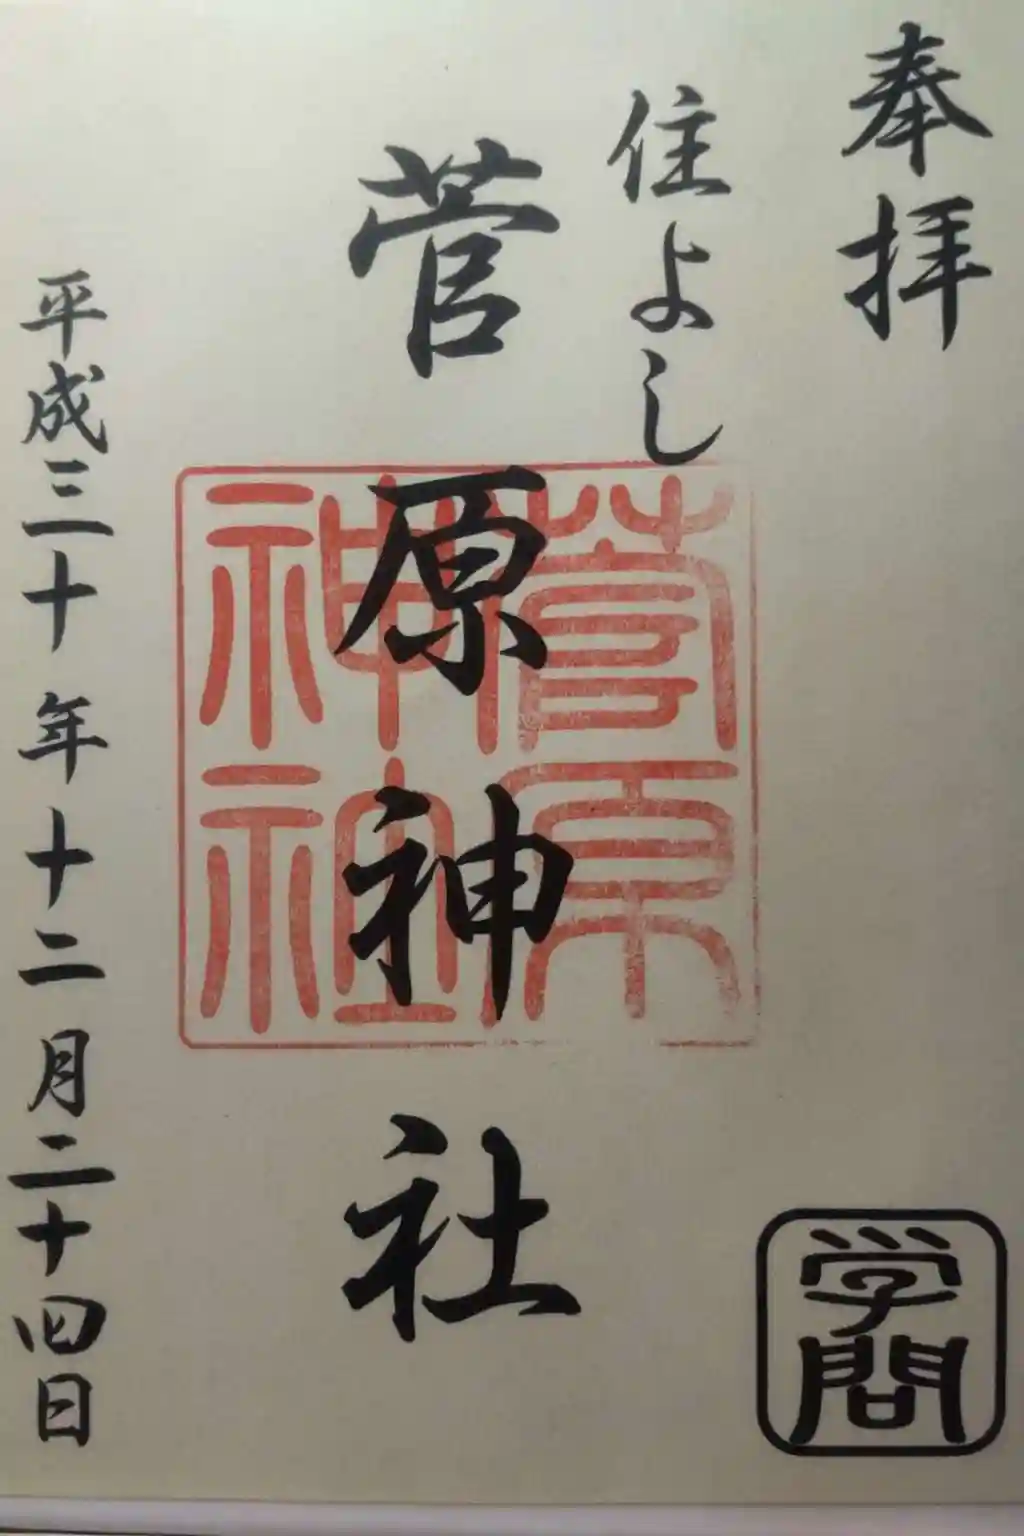 奉拝
住よし
菅原神社
菅原
神社
学問
平成三十年十二月二十四日